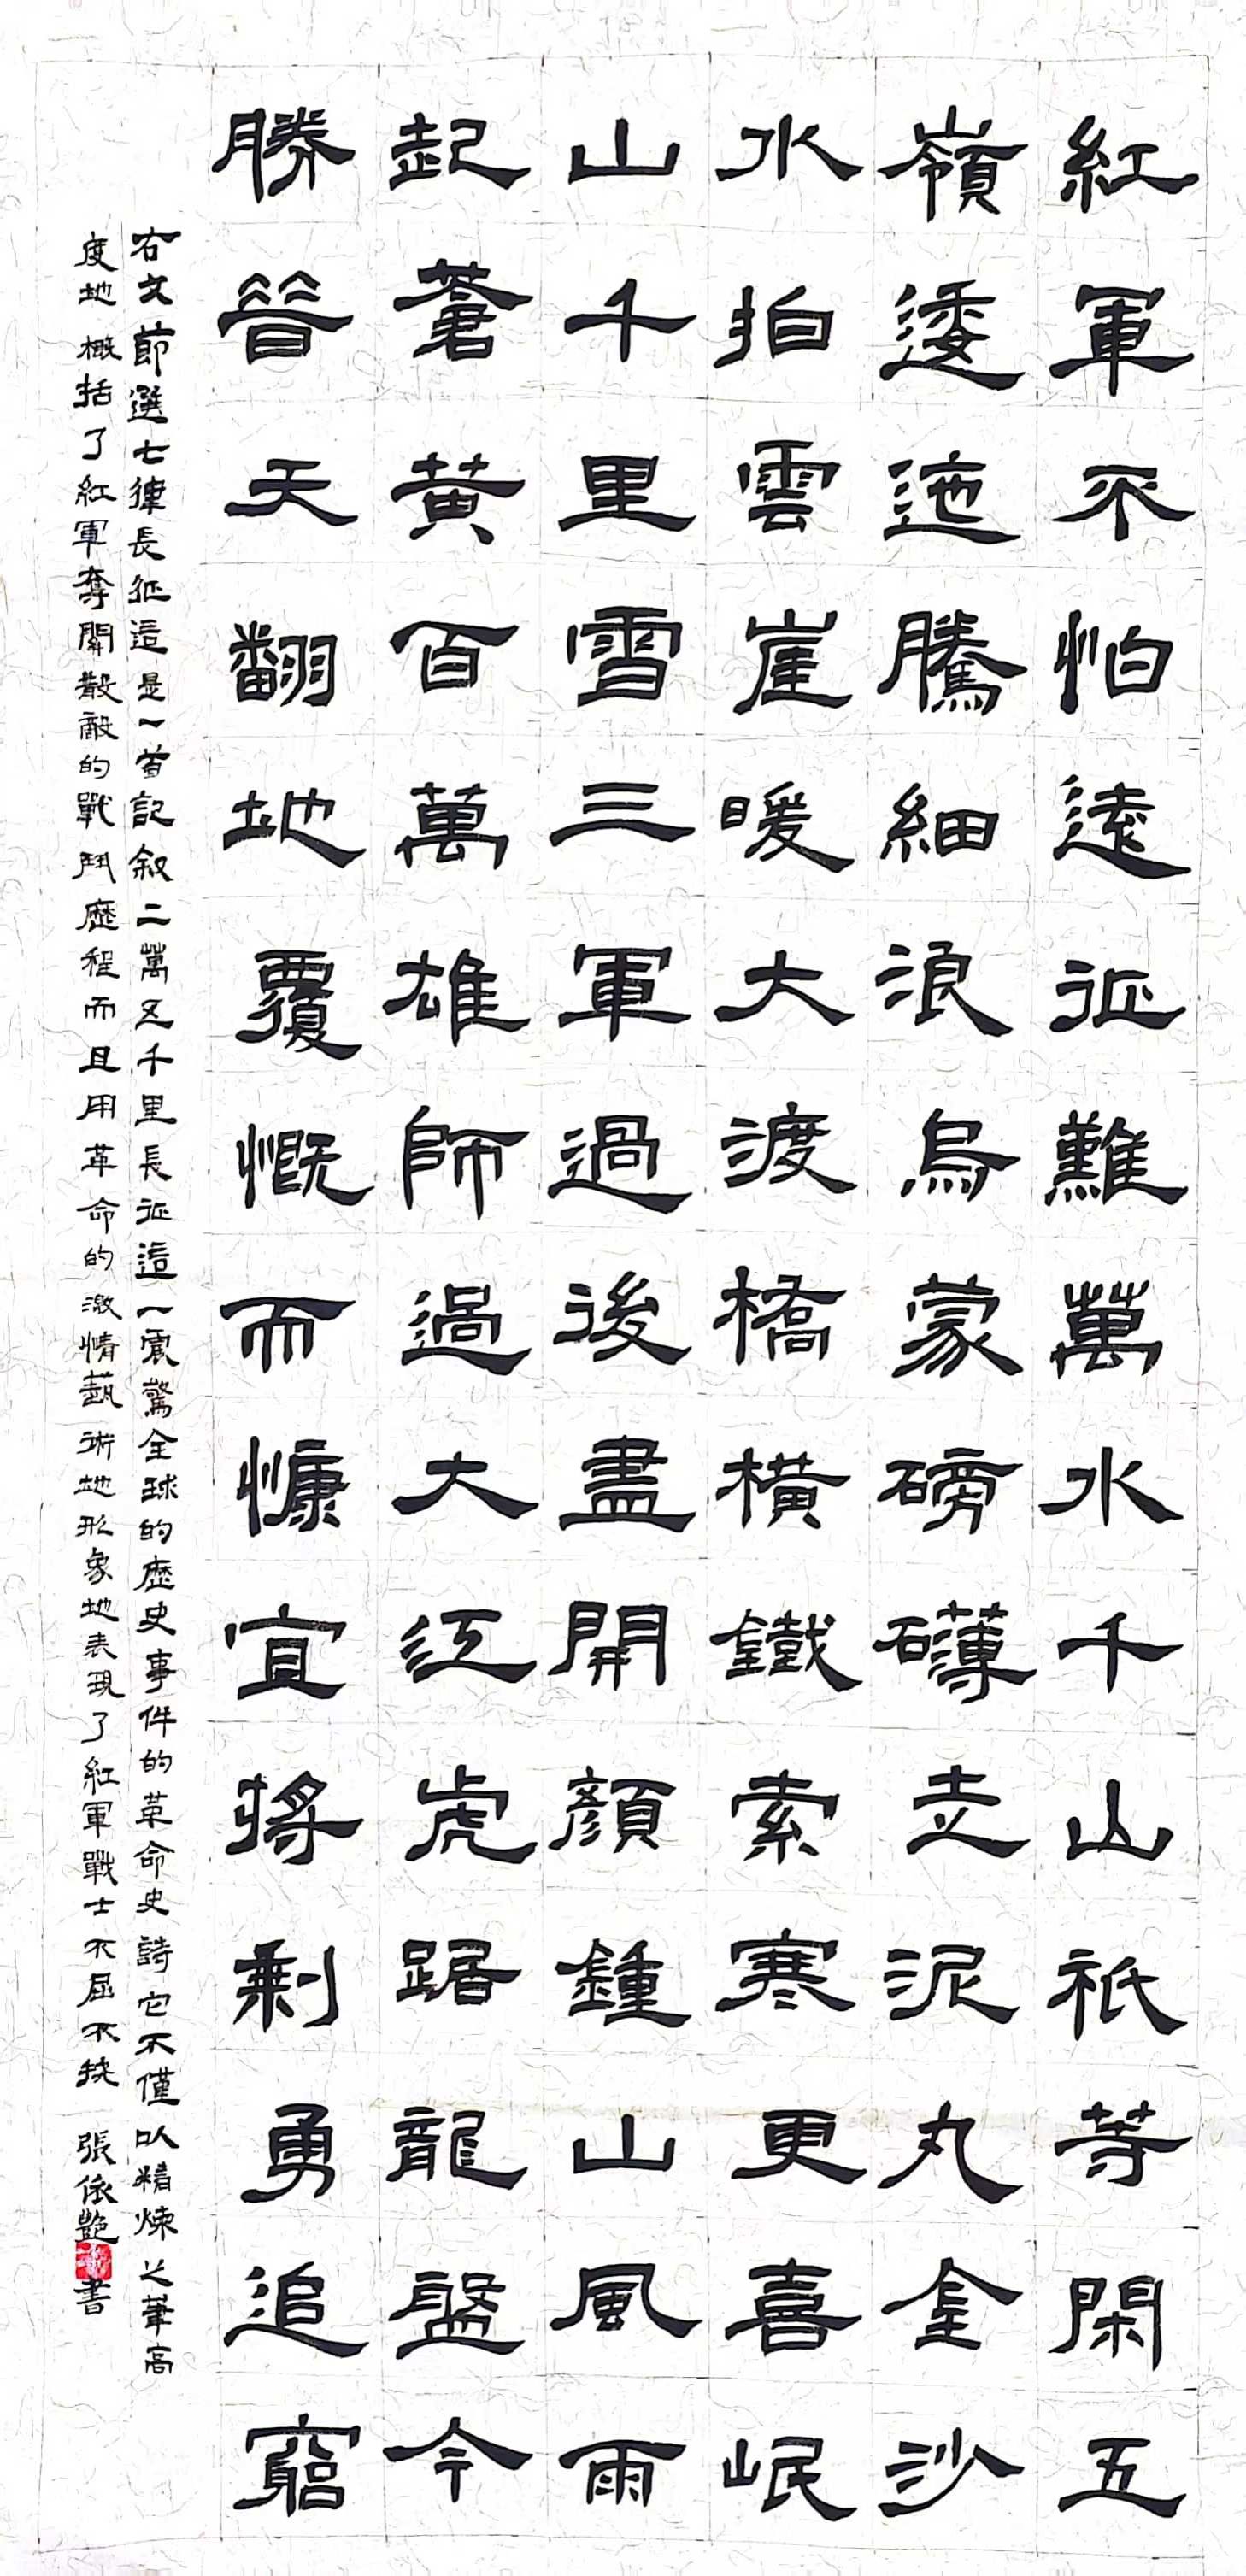 紅軍不怕遠征難萬水千山祇等閑五
嶺逶迤騰細浪烏蒙磅礴走泥丸金沙
水拍雲崖暖大渡橋橫鐵索寒更喜岷
山千里雪三軍過後盡開顏鍾山風雨
起蒼黃百萬雄師過大江虎踞龍盤今
勝昔天翻地覆慨而慷宜將剩勇追窮
右文節選七律長征這是一首記敘二萬五千里長征這一震驚全球的歷史事件的革命史詩它不僅以精煉之筆高
度地概括了紅軍奪關殺敵的戰鬥歷程而且用革命的激情藝術地形象地表現了紅軍戰士不屈不撓 張依艷書